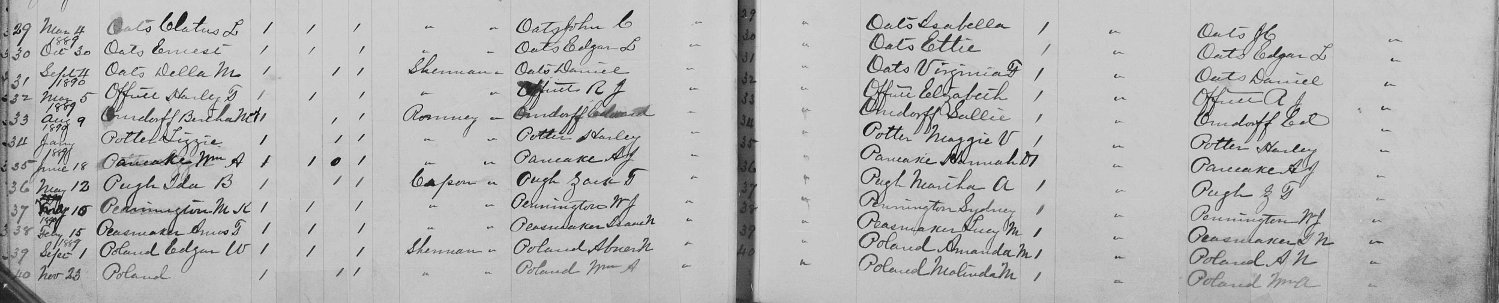 29 Mar 4 Oats Clatus L 1 1 1 " " Oats John C " 29 " Oats Isabella 1 " Oats JC "
1889
30 Oct 30 Oats Ernest 1 1 1 " " Oats Edgar L " 30 " Oats Ettie 1 " Oats Edgar L "
31 Sept 4 Oats Della M 1 1 1 Sherman " Oats Daniel " " Oats Virginia F 1 " Oats Daniel "
1890
32 May 5 Offutt Harley T 1 1 1 " " Offutt R J " 32 " Offutt Elizabeth 1 " Offutt A J "
1889
33 Aug 9 Orndorff Bertha 1 1 1 Romney " Orndorff Edward " 33 " Orndorff Sallie 1 " Orndorff Ed "
34 Jany Potter Lizzie 1 1 1 " " Potter Harley " 34 " Potter Maggie V 1 " Potter Harley "
35 June 18 Pancake Wm A 1 1 1 " " Pancake A J " " Pancake Hannah 1 " Pancake A J "
36 May 12 Pugh Ida B 1 1 1 Capon " Pugh T " " Pugh Martha A 1 " Pugh Z T "
37 15 Pennington M K 1 1 1 " " Pennington W J " 37 " Pennington Sydney 1 " Pennington W J "
38 Feby 15 Peasmaker Amos T 1 1 1 " " Peasmaker Isaac N " " Peasmaker Lucy M 1 " Peasmaker I N "
1889
39 Sept 1 Poland Edgar W 1 1 1 Sherman " Poland Abner N " " Poland Amanda M 1 " Poland A N "
40 Nov 23 Poland 1 1 1 " " Poland Wm A " 40 " Poland Malinda M 1 " Poland Wm A "